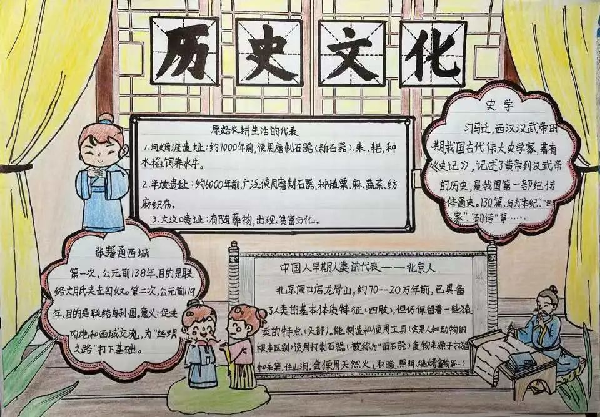 历史文化
原始农耕生活的代表
1.河姆渡遗址:约7000年前,使用磨制石器(新石器)、耒、耜,种
水稻,饲养水牛。
2.半坡遗址:约6000年前,广泛使用磨制石器,种植粟、麻、蔬菜,纺
麻织布。
3.大汶口遗址:有陪葬物,出现贫富分化。
史学
司马迁,西汉汉武帝时
期我国古代伟大史学家,著有
《史记》,记述了黄帝到汉武帝
的历史,是我国第一部纪传
体通史。130篇,
张骞通西域
第一次,公元前138年,目的是联
络大月氏夹击匈奴。第二次,公元前119
年,目的是联络乌孙国,意义:促进
内地和西域交流,为"丝绸
之路"打下基础。
中国人早期人类的代表——北京人
北京周口店龙骨山,约70—20万年前,已具备
了人类的基本体质特征(四肢),但仍保留着一些猿
类的特点(头部),能制造和使用工具(是人和动物的
根本区别)使用打制石器
使用天然火,